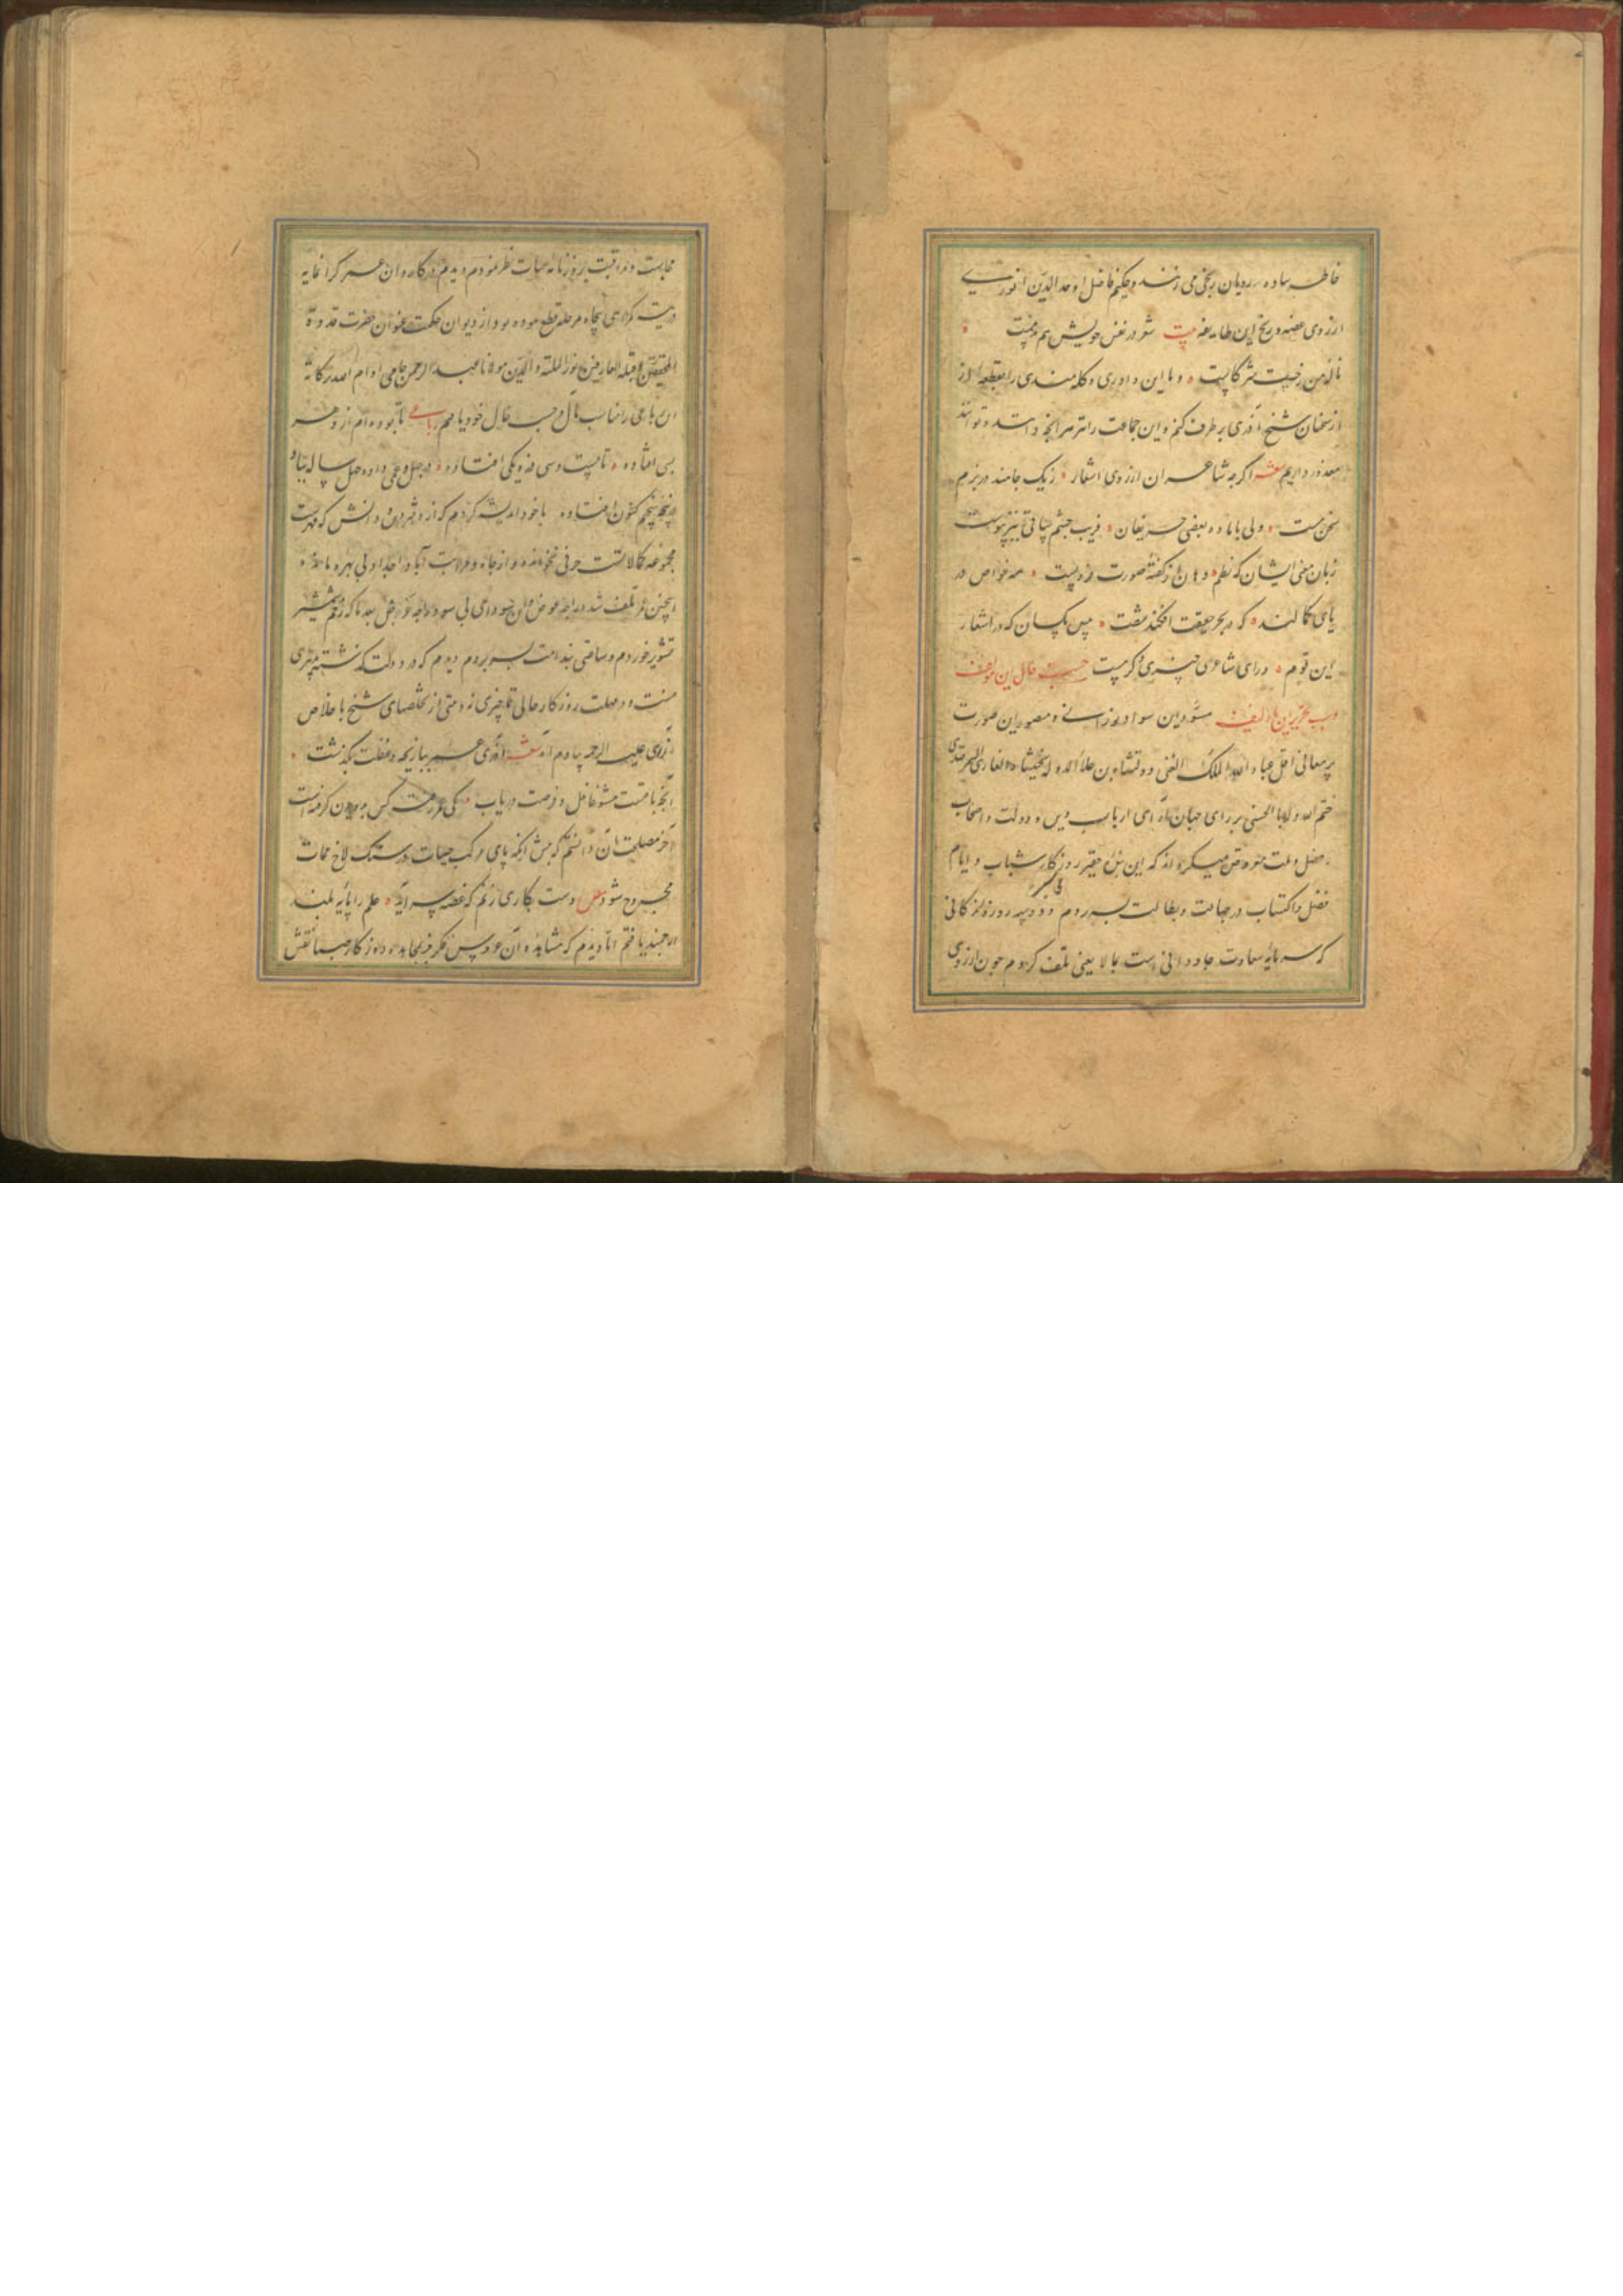 خاطر ساده رویان ریخی می زنند و حکیم فاضل اوحد الدین انوری
از روی غصه و رنج این طایفه بیت شعر در نفس خویش هم بد نیست
ناله من ز خست شرکاست و ما این داوری و کله مندی را بقطعه از
از سخنان شیخ آذری بر طرف کنم و این جماعت را
معذور داریم شعر اگرچه شاعران از روی اشعار ز یک جامند در بزم
سخن مست ولی با باده بعضی حریفان فریب چشم ساقی نیز پیوست
زبان معنی ایشان که نظم دهان از گفته صورت فروبست همه غواص در
پای کمالند که در بحر حقیقت افکند شست مبین یکسان که در اشعار
این قوم ورای شاعری چیزی دگر هست حسب حال این مولف
و سبب تحریر این تالیف مسود این سواد و مصور این صورت
پر معانی اقل عباد الله الملک الغنی دولتشاه بن علاء الدوله بختیشاه الغازی السمرقندی
ختم الله له بالحسنی بر رای جهان آرای ارباب دین و دولت و اصحاب
فضل و ملت معروض میکرداند که این بنده حقیر روزگار شباب و ایام
فضل و اکتساب در جهالت و بطالت بسر بردم و دو سه روزه زندکانی
که سرمایه سعادت جاودانی است بما لا یعنی تلف کردم چون از روی
محاسبت و مراقبت بروزنامه حیات نظر نمودم دیدم که کاروان عمر کرانمایه
در تیه کمراهی پنجاه مرحله قطع نموده بود از دیوان حکمت عنوان حضرت قدوة
المحققین و قبلة العارفین نور الملة والدین مولانا عبد الرحمن جامی ادام الله برکاته
این رباعی را مناسب حال و حسب حال خود یافتم رباعی تا بوده ام از دهر
بسی افتاده تا بیست و سی فزونکی افتاده در جهل و عمی داده چهل سال بباد
در پنجه پنجم کنون افتاده با خود اندیشه کردم که از دفتر دانش که فهرست
مجموعه کمالاتست حرفی نخوانده و از جاه و مراتب آبا و اجداد بی بهره مانده
اینچنین عمر تلف شد در
تشویر خوردم و ساعتی بندامت بسر بردم دیدم که در دولت گذشته
نیست و در مهلت روزکار حالی نه و متی از تخلصهای شیخ با خلاص
آذری علیه الرحمه بیادم آمد شعر آذری عمر ببازیچه و غفلت بگذشت
آنچه باقیست مشو غافل و فرصت دریاب
آخر مصلحت آن دانستم که پیش از آنکه پای مرکب حیات در سنگ لاخ ممات
مجروح شود مصرع دست بکاری زنم که غصه سر آید علم را پایه بلند
ارجمند یافتم اما دیدم که مشاهده آن عروس فکر جز بمجاهده